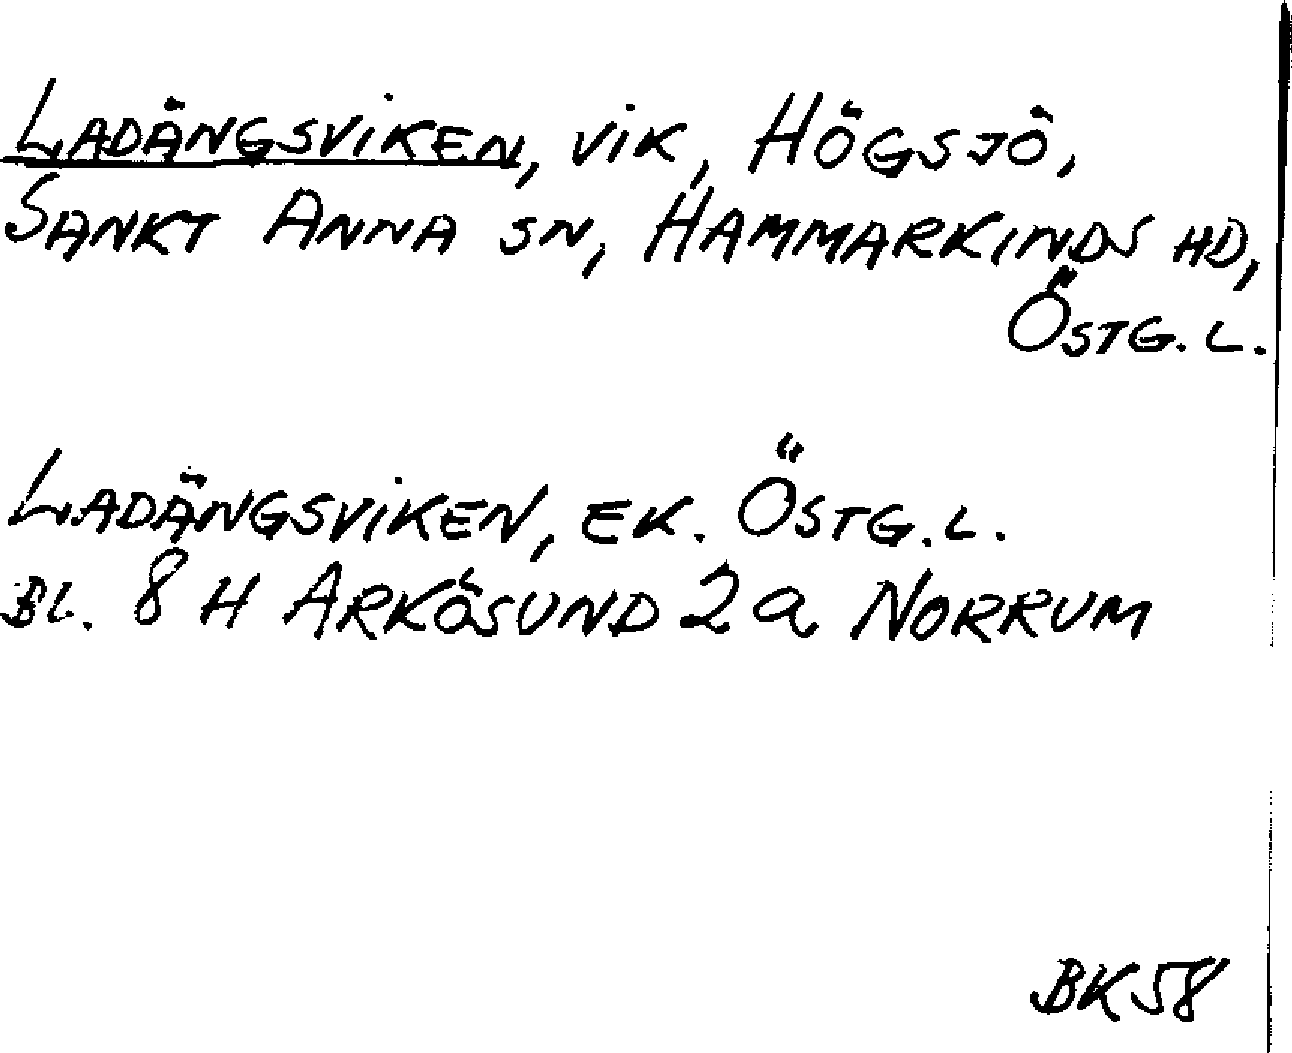 LADÄNGSVIKEN, VIK, HÖGSJÖ,
SANKT ANNA SN, HAMMARKINDS HD,
ÖSTG. L.
LADÄNGSVIKEN, EK. ÖSTG. L.
BL. 8 H ARKÖSUND 2 a NORRUM
BK 58